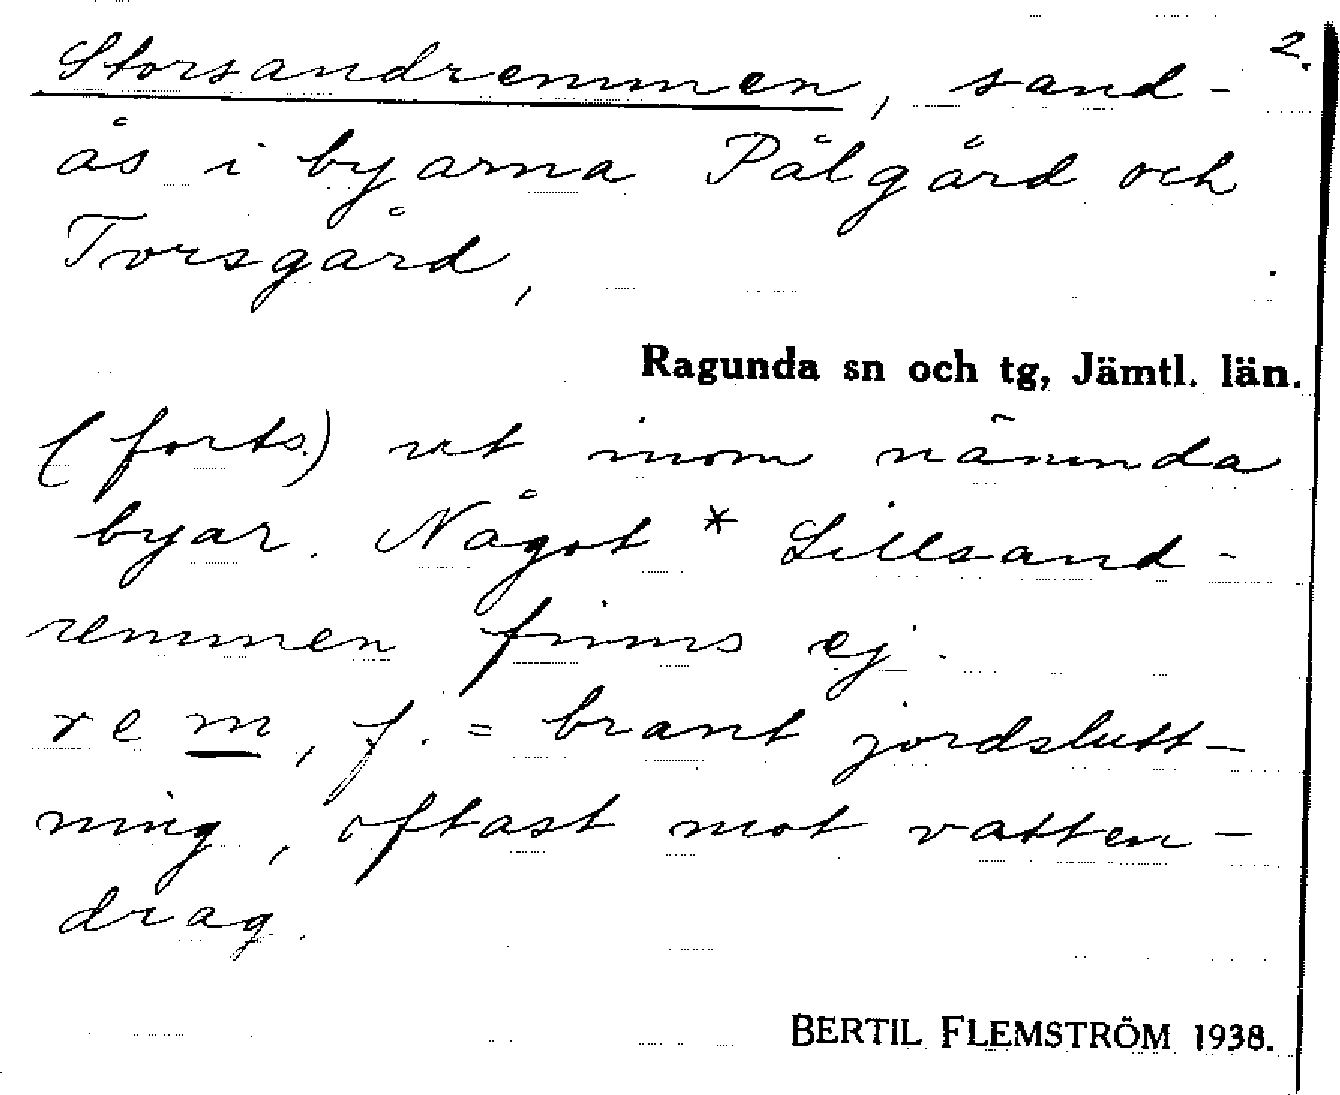 2.
Storsandremmen, sand-
ås i byarna Pålgård och
Torsgård,
Ragunda sn och tg, Jämtl. län.
(forts.) ut inom nämnda
byar. Något * Lillsand-
remmen finns ej.
rem, f. = brant jordslutt-
ning, oftast mot vatten-
drag.
BERTIL FLEMSTRÖM 1938.